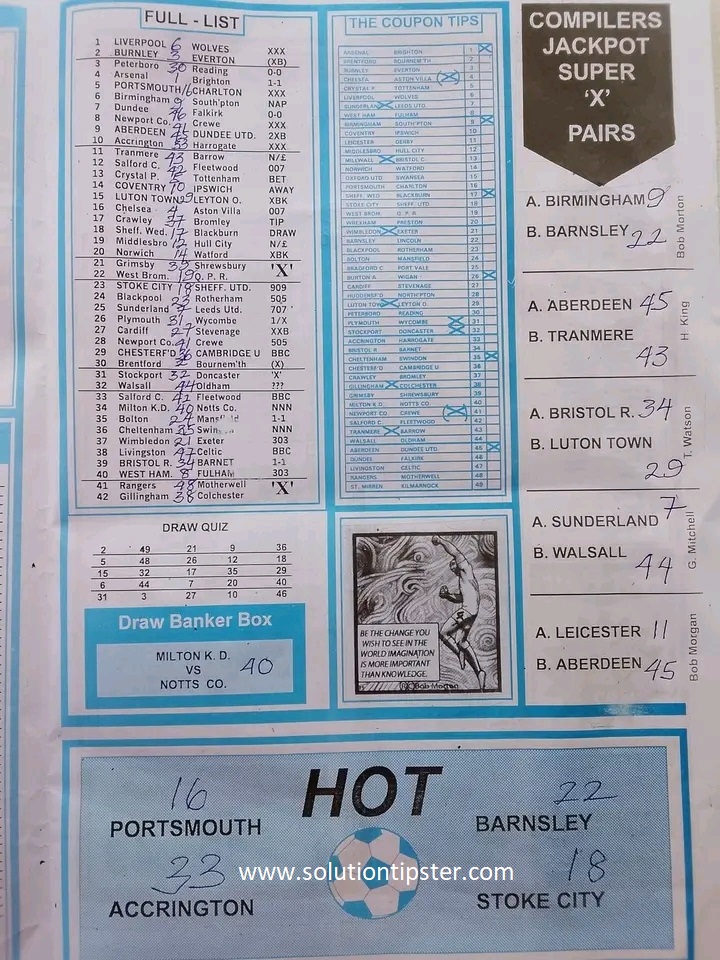 FULL - LIST
1 LIVERPOOL 6 WOLVES XXX
2 BURNLEY 3 EVERTON (XB)
3 Peterboro 30 Reading 0-0
4 Arsenal 1 Brighton 1-1
5 PORTSMOUTH 16 CHARLTON XXX
6 Birmingham 9 South'pton NAP
7 Dundee 46 Falkirk 0-0
8 Newport Co. Crewe XXX
9 ABERDEEN DUNDEE UTD. 2XB
10 Accrington 33 Harrogate XXX
11 Tranmere 43 Barrow N/£
12 Salford C. 42 Fleetwood 007
13 Crystal P. Tottenham BET
14 COVENTRY 10 IPSWICH AWAY
15 LUTON TOWN 29 LEYTON O. XBK
16 Chelsea 4 Aston Villa 007
17 Crawley 37 Bromley TIP
18 Sheff. Wed. 17 Blackburn DRAW
19 Middlesbro 12 Hull City N/£
20 Norwich 14 Watford XBK
21 Grimsby 39 Shrewsbury 'X'
22 West Brom. 19 Q. P. R.
23 STOKE CITY 18 SHEFF. UTD. 909
24 Blackpool 23 Rotherham 505
25 Sunderland 7 Leeds Utd. 707
26 Plymouth 31 Wycombe 1/X
27 Cardiff 27 Stevenage XXB
28 Newport Co. 41 Crewe 505
29 CHESTERF'D 36 CAMBRIDGE U BBC
30 Brentford Bournem'th (X)
31 Stockport 32 Doncaster 'X'
32 Walsall 44 Oldham ???
33 Salford C. 42 Fleetwood BBC
34 Milton K.D. 40 Notts Co. NNN
35 Bolton 24 Mansfield 1-1
36 Cheltenham 35 Swindon NNN
37 Wimbledon 21 Exeter 303
38 Livingston 47 Celtic BBC
39 BRISTOL R. 34 BARNET 1-1
40 WEST HAM. 8 FULHAM 303
41 Rangers 48 Motherwell 'X'
42 Gillingham 38 Colchester
DRAW QUIZ
2 49 21 9 36
5 48 26 12 18
15 32 17 35 29
6 44 7 20 40
31 3 27 10 46
Draw Banker Box
MILTON K. D.
VS 40
NOTTS CO.
THE COUPON TIPS
ARSENAL BRIGHTON 1
BRENTFORD BOURNEM'TH 2
BURNLEY EVERTON 3
CHELSEA ASTON VILLA 4
CRYSTAL P. TOTTENHAM 5
LIVERPOOL WOLVES 6
SUNDERLAND LEEDS UTD. 7
WEST HAM FULHAM 8
BIRMINGHAM SOUTH'PTON 9
COVENTRY IPSWICH 10
LEICESTER DERBY 11
MIDDLESBRO HULL CITY 12
MILLWALL BRISTOL C. 13
NORWICH WATFORD 14
OXFORD UTD SWANSEA 15
PORTSMOUTH CHARLTON 16
SHEFF. WED BLACKBURN 17
STOKE CITY SHEFF. UTD. 18
WEST BROM. Q. P. R. 19
WREXHAM PRESTON 20
WIMBLEDON EXETER 21
BARNSLEY LINCOLN 22
BLACKPOOL ROTHERHAM 23
BOLTON MANSFIELD 24
BRADFORD C PORT VALE 25
BURTON A. WIGAN 26
CARDIFF STEVENAGE 27
HUDDERSF'D NORTH'PTON 28
LUTON TOWN LEYTON O. 29
PETERBORO READING 30
PLYMOUTH WYCOMBE 31
STOCKPORT DONCASTER 32
ACCRINGTON HARROGATE 33
BRISTOL R BARNET 34
CHELTENHAM SWINDON 35
CHESTERF'D CAMBRIDGE U 36
CRAWLEY BROMLEY 37
GILLINGHAM COLCHESTER 38
GRIMSBY SHREWSBURY 39
MILTON K.D NOTTS CO. 40
NEWPORT CO CREWE 41
SALFORD C. FLEETWOOD 42
TRANMERE BARROW 43
WALSALL OLDHAM 44
ABERDEEN DUNDEE UTD. 45
DUNDEE FALKIRK 46
LIVINGSTON CELTIC 47
RANGERS MOTHERWELL 48
ST. MIRREN KILMARNOCK 49
BE THE CHANGE YOU
WISH TO SEE IN THE
WORLD IMAGINATION
IS MORE IMPORTANT
THAN KNOWLEDGE.
Bob Morton
COMPILERS
JACKPOT
SUPER
'X'
PAIRS
A. BIRMINGHAM 9
B. BARNSLEY 22
Bob Morton
A. ABERDEEN 45
B. TRANMERE
43
H. King
A. BRISTOL R. 34
B. LUTON TOWN
29
T. Watson
A. SUNDERLAND 7
B. WALSALL
44
G. Mitchell
A. LEICESTER 11
B. ABERDEEN 45
Bob Morgan
HOT
16
PORTSMOUTH
22
BARNSLEY
33
ACCRINGTON
18
STOKE CITY
www.solutiontipster.com